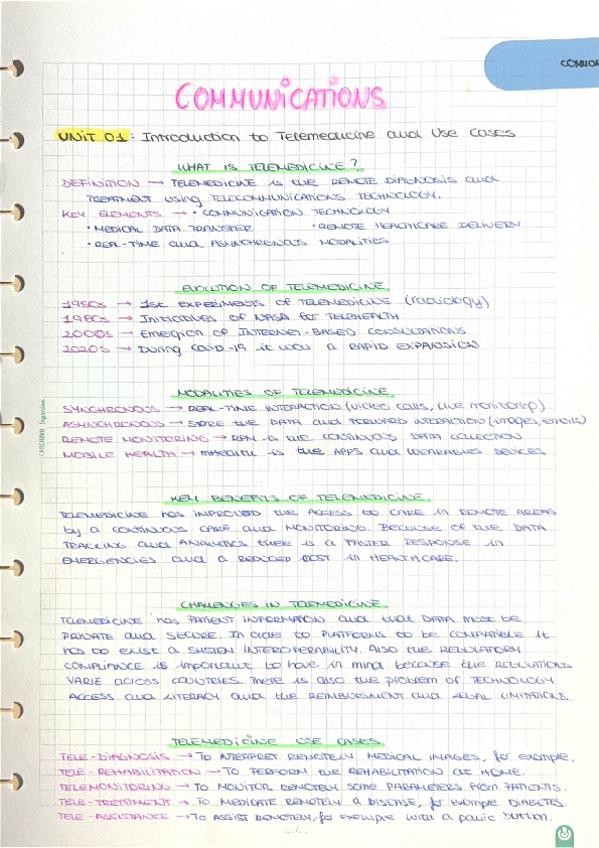 COMMUN
COMMUNICATIONS
UNIT 01: Introduction to Telemedicine and Use Cases
WHAT IS TELEMEDICINE?
DEFINITION → TELEMEDICINE is the REMOTE DIAGNOSIS and
TREATMENT using TELECOMMUNICATIONS TECHNOLOGY.
KEY ELEMENTS → · COMMUNICATION TECHNOLOGY
· MEDICAL DATA TRANSFER · REMOTE HEALTHCARE DELIVERY
· REAL-TIME and ASYNCHRONOUS MODALITIES
EVOLUTION OF TELEMEDICINE
1950s → 1st EXPERIMENTS of TELEMEDICINE (radiology)
1980s → Initiatives of NASA for TELEHEALTH
2000s → Emergion of INTERNET-BASED CONSULTATIONS
2020s → During COVID-19 it was a RAPID EXPANSION
MODALITIES OF TELEMEDICINE
SYNCHRONOUS → REAL-TIME INTERACTION (video calls, live monitoring)
ASYNCHRONOUS → STORE the DATA and FORWARD INTERACTION (images, emails)
REMOTE MONITORING → RPM is the CONTINUOS DATA COLLECTION
MOBILE HEALTH → mHealth is the APPS and WEARABLES DEVICES.
KEY BENEFITS OF TELEMEDICINE
TELEMEDICINE has IMPROVED the ACCESS to CARE in REMOTE AREAS
by a CONTINUOUS CARE and MONITORING. Because of the DATA
TRACKING and ANALYTICS there is a FASTER RESPONSE in
EMERGENCIES and a REDUCED COST in HEALTHCARE.
CHALLENGES IN TELEMEDICINE
TELEMEDICINE has PATIENT INFORMATION and that DATA must be
PRIVATE and SECURE. In order to PLATFORMS to be COMPATIBLE it
has to exist a SYSTEM INTEROPERABILITY. Also the REGULATORY
COMPLIANCE is important to have in mind because the REGULATIONS
VARIE across COUNTRIES. There is also the problem of TECHNOLOGY
ACCESS and LITERACY and the REIMBURSMENT and LEGAL LIMITATIONS.
TELEMEDICINE USE CASES
TELE-DIAGNOSIS → To INTERPRET REMOTELY MEDICAL IMAGES, for example.
TELE-REHABILITATION → To PERFORM the REHABILITATION at HOME.
TELEMONITORING → To MONITOR REMOTELY some PARAMETERS from PATIENTS.
TELE-TREATMENT → To MEDICATE REMOTELY a DISEASE, for example DIABETES.
TELE-ASSISTANCE → To ASSIST REMOTELY, for example with a panic button.
.../...